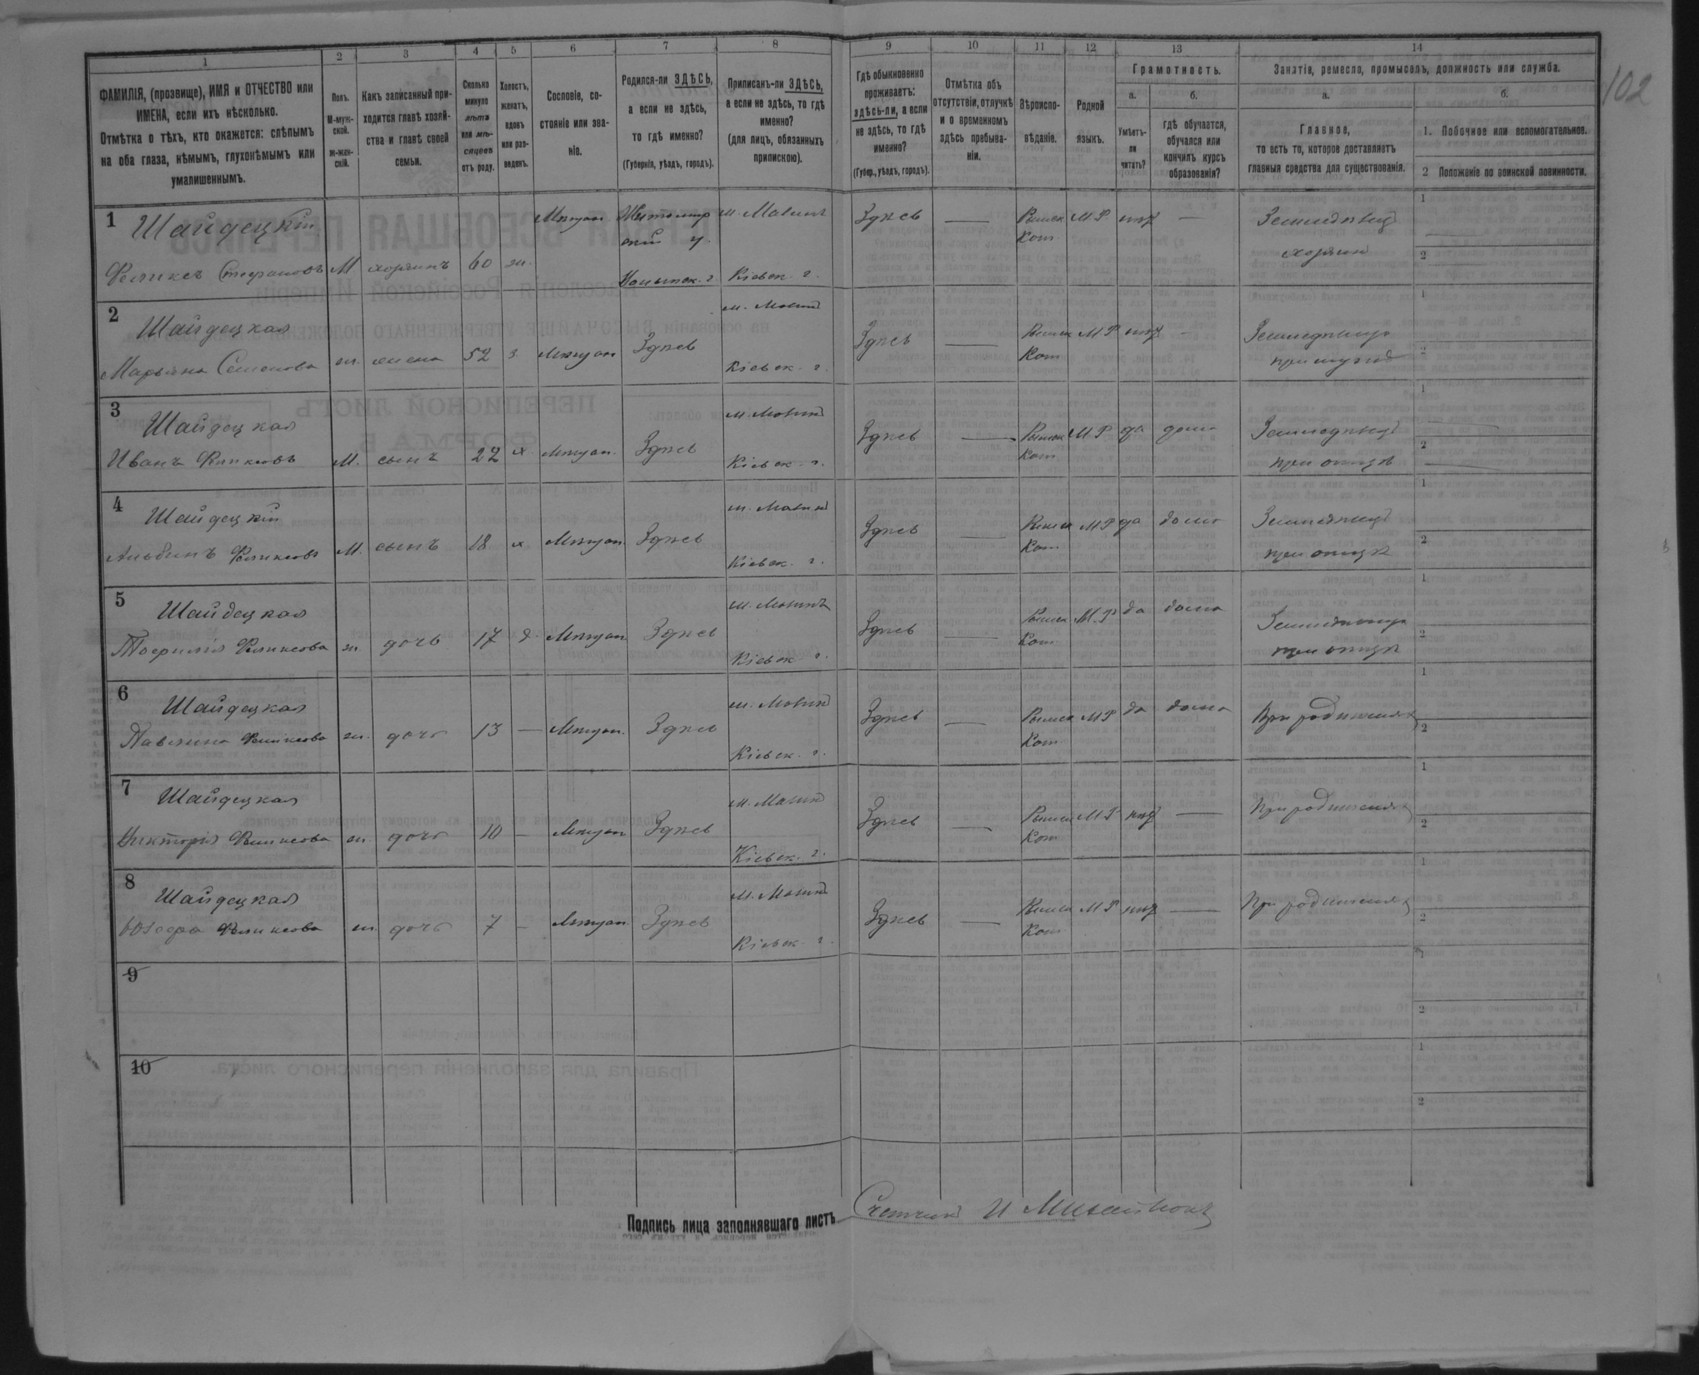 102
1 2 3 4 5 6 7 8 9 10 11 12 13 14
ФАМИЛІЯ, (прозвище), ИМЯ и ОТЧЕСТВО или
ИМЕНА, если ихъ нѣсколько.
Отмѣтка о тѣхъ, кто окажется: слѣпымъ
на оба глаза, нѣмымъ, глухонѣмымъ или
умалишеннымъ.
Полъ.
М-муж-
ской.
ж-жен-
скій.
Какъ записанный при-
ходится главѣ хозяй-
ства и главѣ своей
семьи.
Сколько
минуло
лѣтъ
или мѣ-
сяцевъ
отъ роду.
Холостъ,
женатъ,
вдовъ
или раз-
веденъ.
Сословіе, со-
стояніе или зва-
ніе.
Родился-ли ЗДѢСЬ,
а если не здѣсь,
то гдѣ именно?
(Губернія, уѣздъ, городъ).
Приписанъ-ли ЗДѢСЬ,
а если не здѣсь, то гдѣ
именно?
(для лицъ, обязанныхъ
припискою).
Гдѣ обыкновенно
проживаетъ:
здѣсь-ли, а если
не здѣсь, то гдѣ
именно?
(Губер., уѣздъ, городъ).
Отмѣтка объ
отсутствіи, отлучкѣ
и о временномъ
здѣсь пребыва-
ніи.
Вѣроиспо-
вѣданіе.
Родной
языкъ.
Грамотность.
а.
Умѣетъ-
ли
читать?
б.
гдѣ обучается,
обучался или
кончилъ курсъ
образованія?
Занятіе, ремесло, промыселъ, должность или служба.
а.
Главное,
то есть то, которое доставляетъ
главныя средства для существованія.
б.
1. Побочное или вспомогательное.
2 Положеніе по воинской повинности.
1 Шайдецкій Мѣщан Житомир м. Макинъ Здѣсь — Римск М.Р. нѣт — Земледѣлец 1
скій у. Кат. хозяин 2
Феликсъ Стефановъ М хозяинъ 60 ж. Волынск. г. Кіевск. г.
2 Шайдецкая м. Макин Здѣсь — Римск М.Р. нѣт — Земледѣлец 1
Марьяна Семенова ж. жена 52 з. Мѣщан Здѣсь Кіевск. г. Кат. при мужѣ 2
3 Шайдецкая м. Макин Здѣсь — Римск М.Р. да дома Земледѣлец 1
Иванъ Феликсовъ М. сынъ 22 х Мѣщан. Здѣсь Кіевск. г. Кат. при отцѣ 2
4 Шайдецкій м. Макин Здѣсь — Римск М.Р. да дома Земледѣлец 1
Альбинъ Феликсовъ М. сынъ 18 х Мѣщан. Здѣсь Кіевск. г. Кат. при отцѣ 2
5 Шайдецкая м. Макинъ Здѣсь — Римск М.Р. да дома Земледѣлец 1
Теофилія Феликсова ж. дочь 17 д. Мѣщан. Здѣсь Кіевск г. Кат. при отцѣ 2
6 Шайдецкая м. Макин Здѣсь — Римск М.Р. да дома При родителях 1
Павлина Феликсова ж. дочь 13 — Мѣщан. Здѣсь Кіевск. г. Кат. 2
7 Шайдецкая м. Макин Здѣсь — Римск М.Р. нѣт — При родителях 1
Викторія Феликсова ж. дочь 10 — Мѣщан Здѣсь Кіевск. г. Кат 2
8 Шайдецкая м. Макин Здѣсь — Римск М.Р. нѣт — При родителях 1
Юзефа Феликсова ж. дочь 7 — Мѣщан Здѣсь Кіевск. г. Кат. 2
9 1
2
10 1
2
Подпись лица заполнявшаго листъ Счетчикъ И